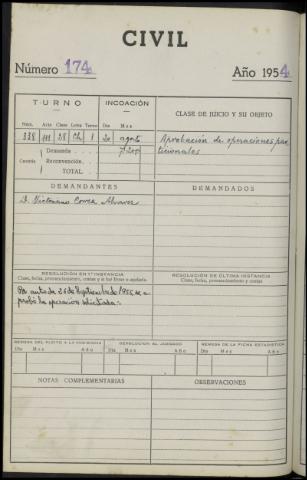 CIVIL
Número 174 Año 1954
TURNO INCOACIÓN CLASE DE JUICIO Y SU OBJETO
Núm. Acto Clase Letra Turno Día Mes
338 28 Ch 1 20 agosto Aprobación de operaciones par
Demanda ticionales
Cuantía Reconvención
TOTAL
DEMANDANTES DEMANDADOS
D. Victoriano Correa Alvarez
RESOLUCIÓN EN 1ª INSTANCIA RESOLUCIÓN DE ÚLTIMA INSTANCIA
Clase, fecha, pronunciamiento, costas y si fué firme o apelada. Clase, fecha, pronunciamiento y costas
Por auto de 25 de Septiembre de 1955 se a
probó la operación solicitada.
REMESA DEL PLEITO A LA AUDIENCIA DEVOLUCIÓN AL JUZGADO REMESA DE LA FICHA ESTADÍSTICA
Día Mes Año Día Mes Año Día Mes Año
NOTAS COMPLEMENTARIAS OBSERVACIONES